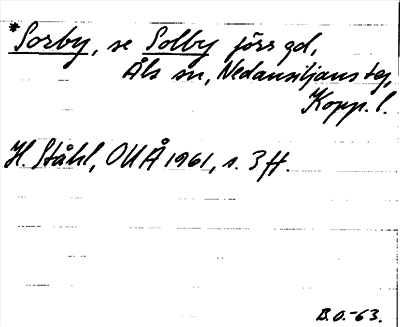 *Sorby, se Solby förs. gd,
Åls sn, Nedansiljans tg,
Kopp. l.
H. Ståhl, OUÅ 1961, s. 3 ff.
B.O.-63.